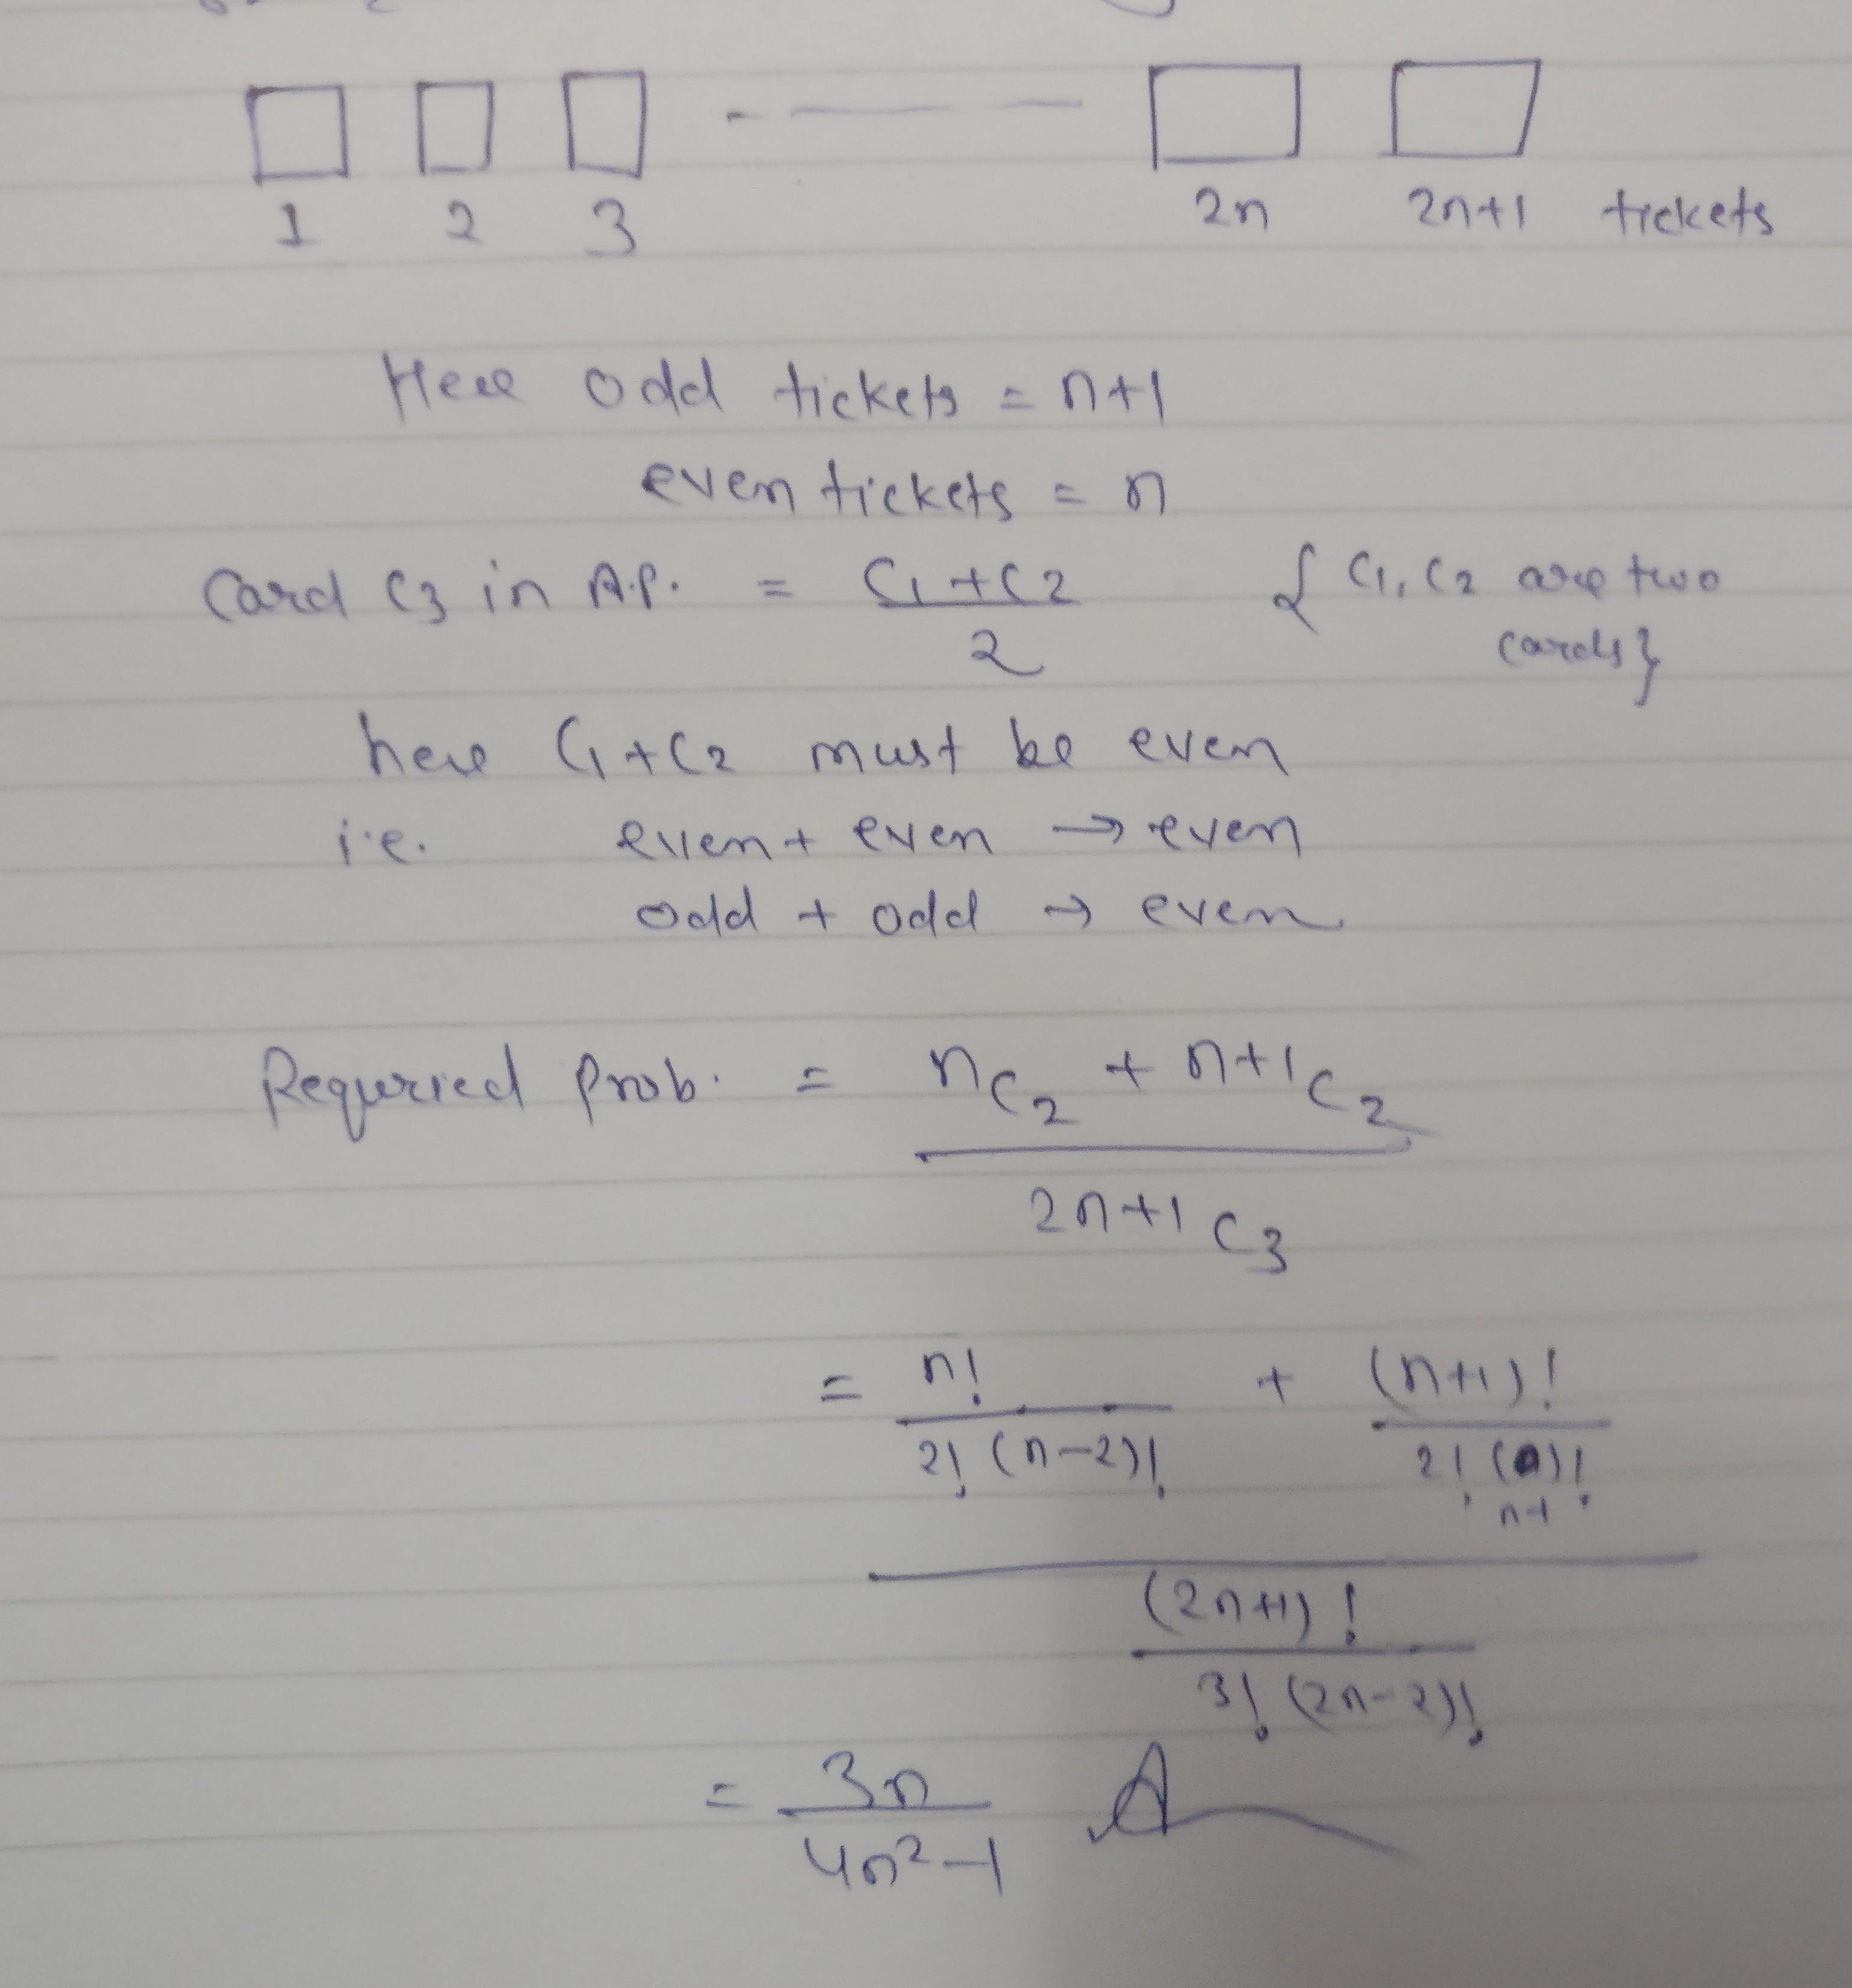 1 2 3 - — 2n 2n+1 tickets
Here odd tickets = n+1
even tickets = n
Card C3 in A.P. = C1+C2 / 2 { C1, C2 are two
cards}
here C1+C2 must be even
i.e. even + even → even
odd + odd → even
Requried prob. = nC2 + n+1C2
2n+1C3
= n! / 2! (n-2)! + (n+1)! / 2! (n-1)!
(2n+1)! / 3! (2n-2)!
= 3n / 4n²-1